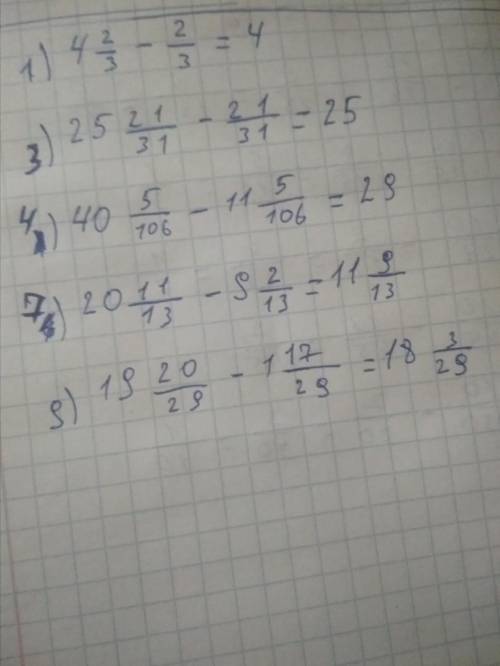 1) 4 2/3 - 2/3 = 4
3) 25 21/31 - 21/31 = 25
4) 40 5/106 - 11 5/106 = 29
7) 20 11/13 - 9 2/13 = 11 9/13
9) 19 20/29 - 1 17/29 = 18 3/29